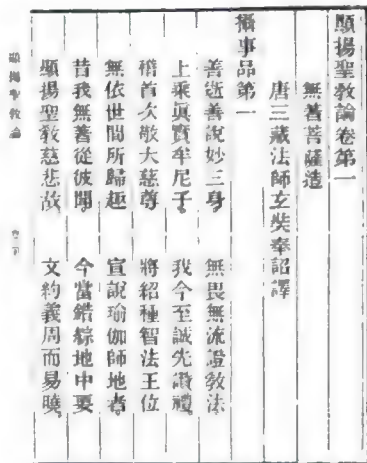 顯揚聖敎論卷第一
無著菩薩造
唐三藏法師玄奘奉詔譯
攝事品第一
善逝善說妙三身 無畏無流證敎法
上乘眞實牟尼子 我今至誠先讚禮
稽首次敬大慈尊 將紹種智法王位
無依世間所歸趣 宣說瑜伽師地者
昔我無著從彼聞 今當錯綜地中要
顯揚聖敎慈悲故 文約義周而易曉
顯揚聖敎論